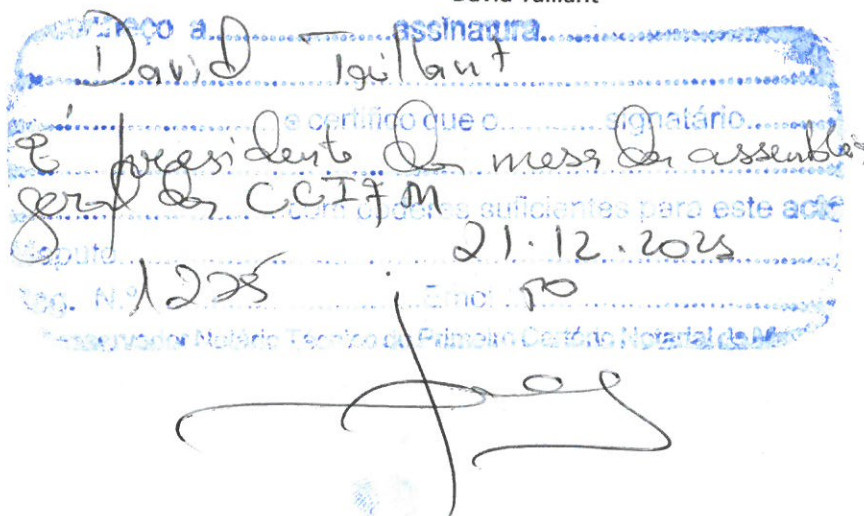 David Taillant
a............... assinatura
David Taillant
e certifico que o............ signatário
é presidente da mesa da assembléia
geral da CCIFM
com poderes suficientes para este acto
21.12.2023
Reg. N.º 1225 Emol 50
Conservador Notário Técnico do Primeiro Cartório Notarial de